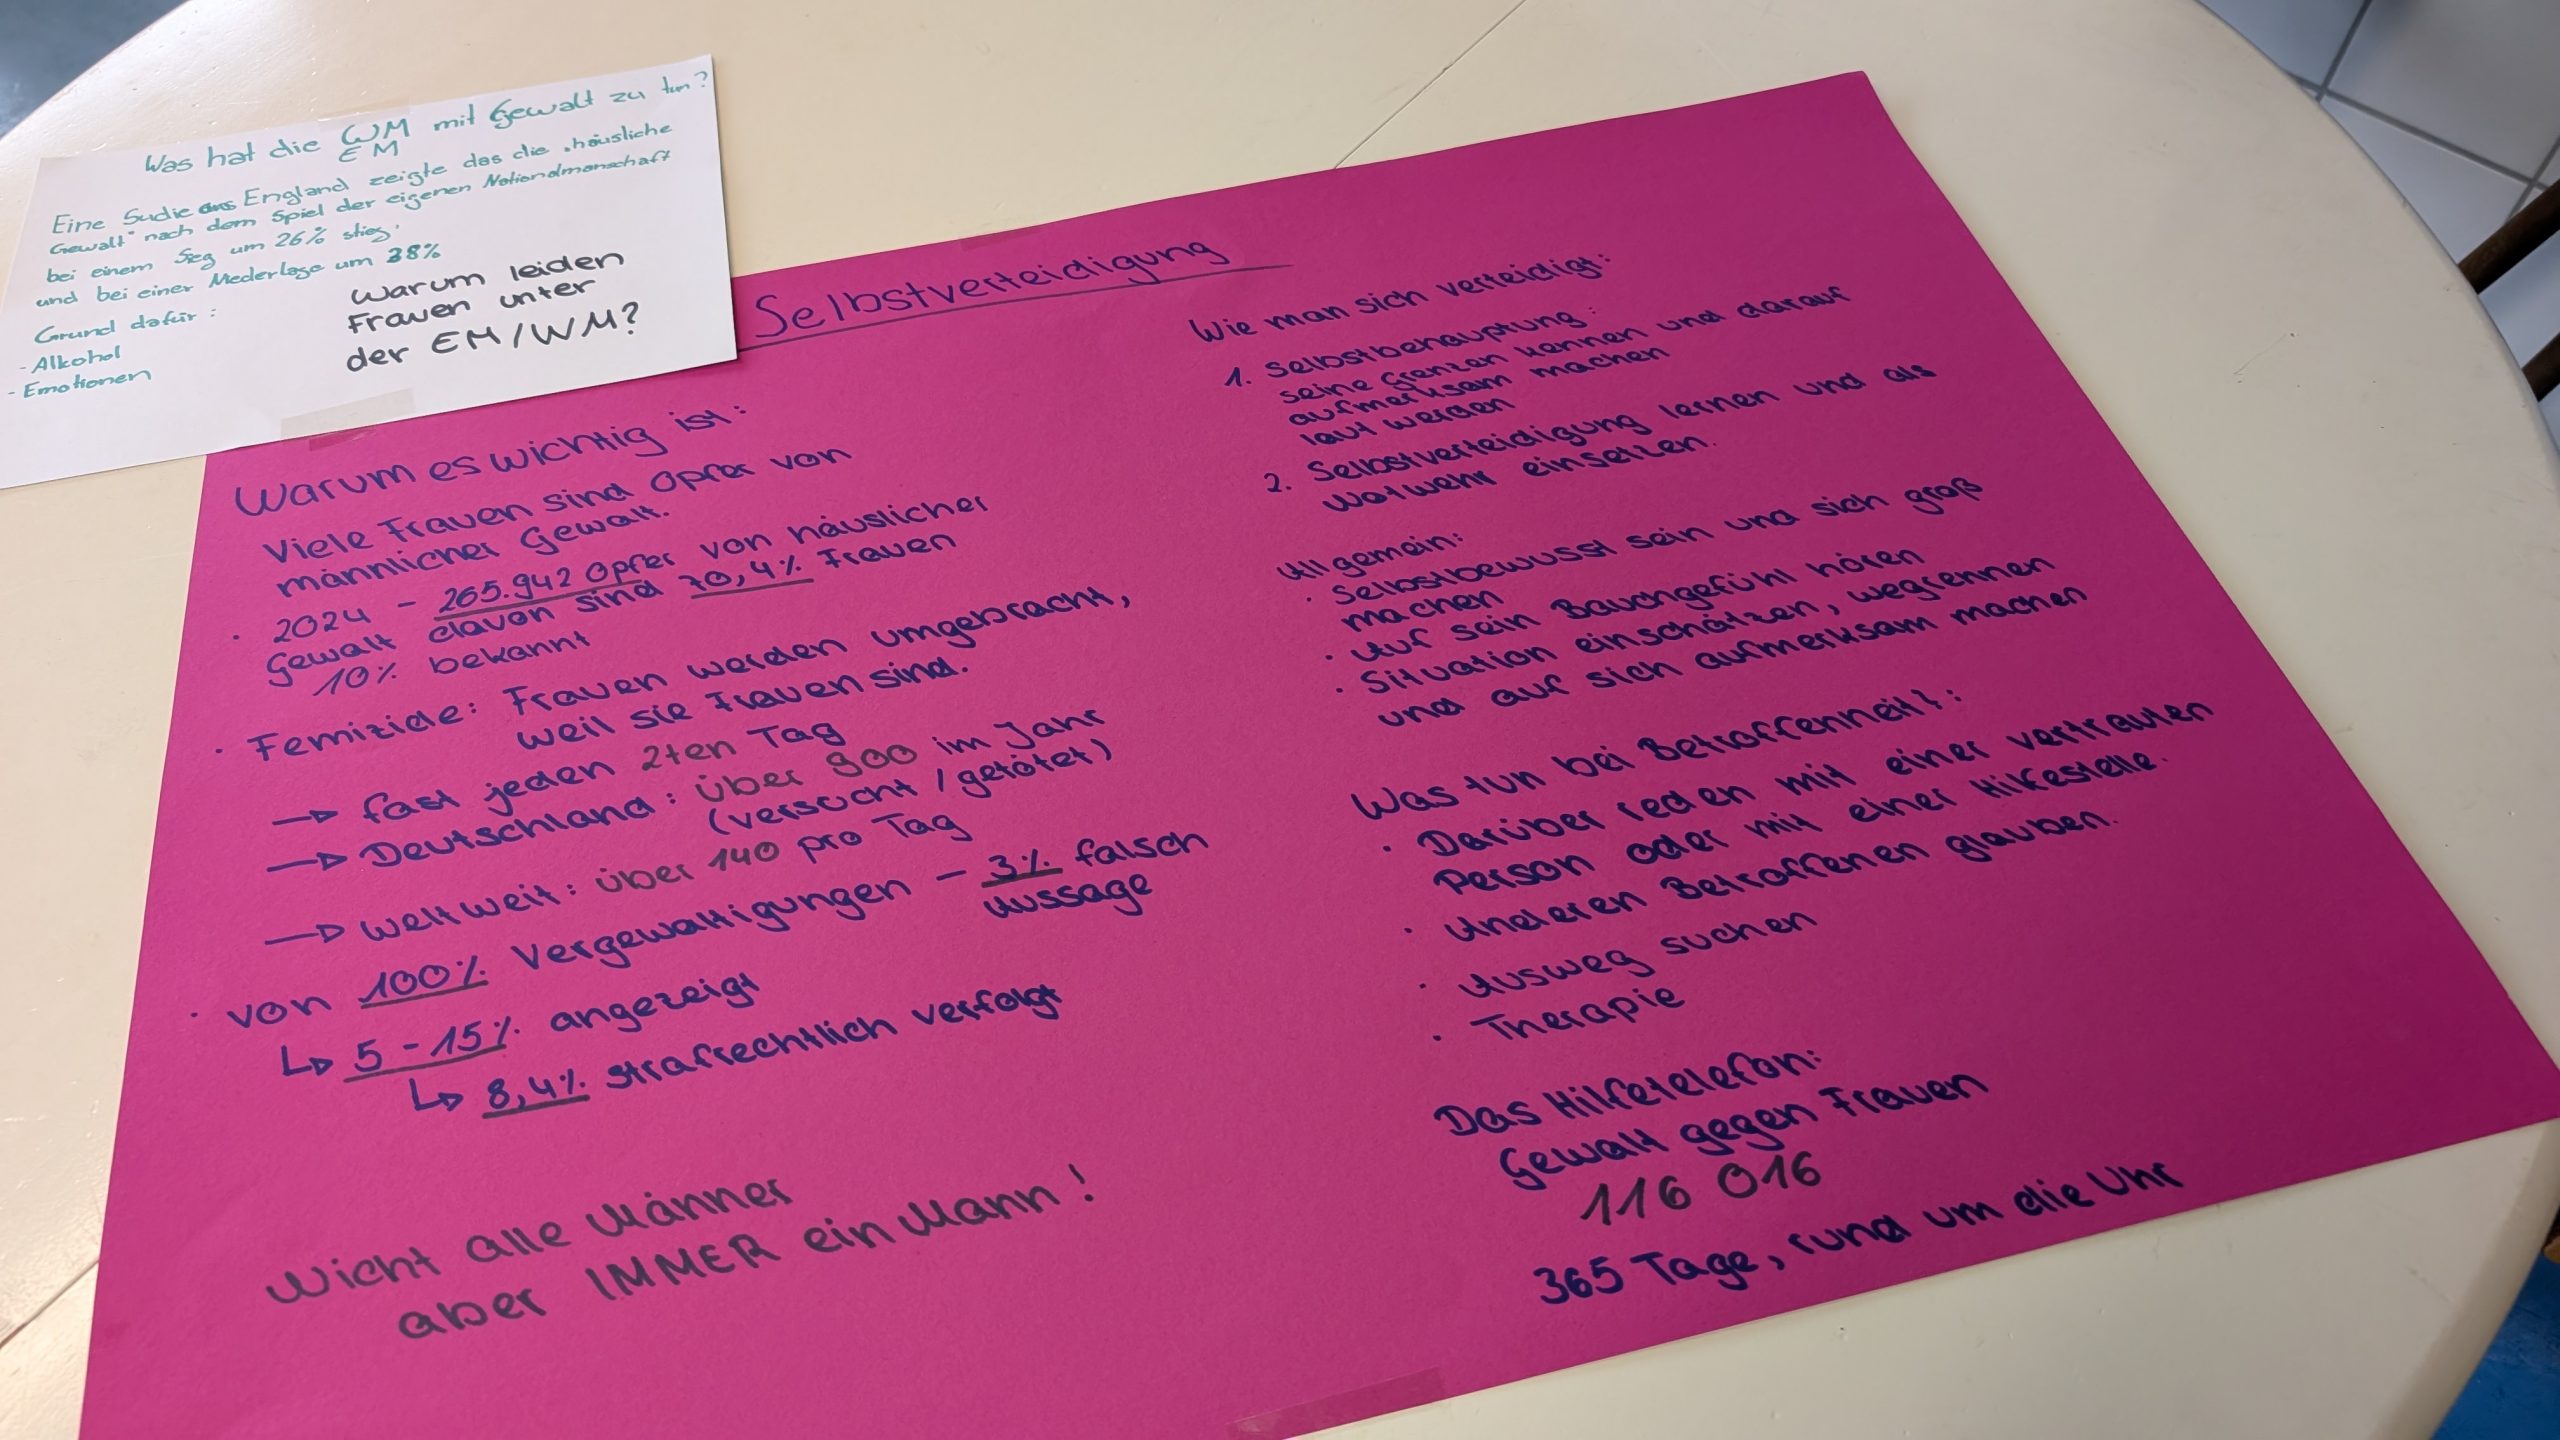 Was hat die WM mit Gewalt zu tun?
EM
Eine Sudie aus England zeigte das die „häusliche
Gewalt" nach dem Spiel der eigenen Nationalmanschaft
bei einem Sieg um 26% stieg,
und bei einer Niederlage um 38%
Grund dafür:
- Alkohol
- Emotionen
Warum leiden
Frauen unter
der EM/WM?
Selbstverteidigung
Warum es wichtig ist:
Viele Frauen sind Opfer von
männlicher Gewalt.
· 2024 - 265.942 Opfer von häuslicher
Gewalt davon sind 70,4% Frauen
10% bekannt
· Femizide: Frauen werden umgebracht,
weil sie Frauen sind.
→ fast jeden 2ten Tag
→ Deutschland: über 900 im Jahr
(versucht / getötet)
→ weltweit: über 140 pro Tag
· von 100% Vergewaltigungen - 3% falsch
Aussage
↳ 5-15% angezeigt
↳ 8,4% strafrechtlich verfolgt
Nicht alle Männer
aber IMMER ein Mann!
Wie man sich verteidigt:
1. Selbstbehauptung:
seine Grenzen kennen und darauf
aufmerksam machen
laut werden
2. Selbstverteidigung lernen und als
Notwehr einsetzen.
Allgemein:
· Selbstbewusst sein und sich groß
machen
· Auf sein Bauchgefühl hören
· Situation einschätzen, wegrennen
und auf sich aufmerksam machen
Was tun bei Betroffenheit?:
· Darüber reden mit einer vertrauten
Person oder mit einer Hilfestelle.
· Anderen Betroffenen glauben.
· Ausweg suchen
· Therapie
Das Hilfetelefon:
Gewalt gegen Frauen
116 016
365 Tage, rund um die Uhr